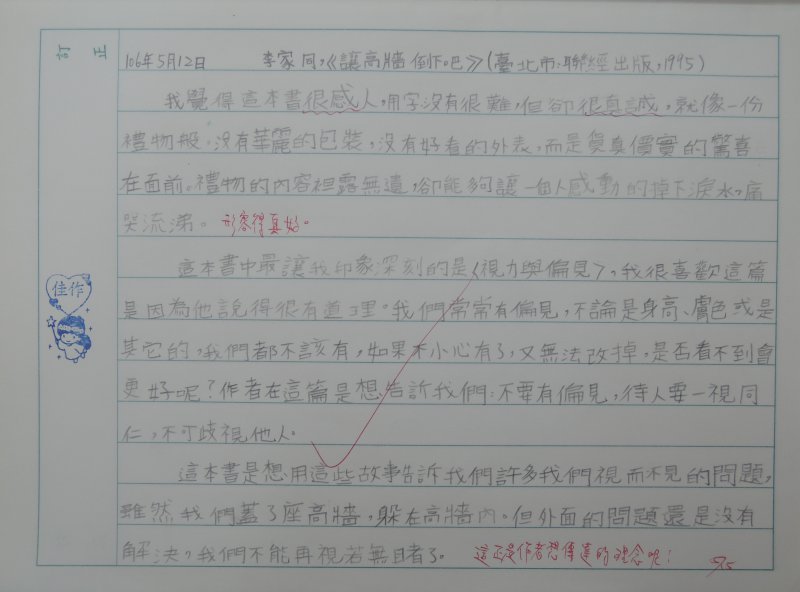 訂正
106年5月12日 李家同,《讓高牆倒下吧》(臺北市:聯經出版,1995)
我覺得這本書很感人,用字沒有很難,但卻很真誠,就像一份
禮物般,沒有華麗的包裝,沒有好看的外表,而是貨真價實的驚喜
在面前。禮物的內容袒露無遺,卻能夠讓一個人感動的掉下淚水,痛
哭流涕。 形容得真好。
這本書中最讓我印象深刻的是〈視力與偏見〉,我很喜歡這篇
是因為他說得很有道理。我們常常有偏見,不論是身高、膚色或是
佳作
其它的,我們都不該有,如果不小心有了,又無法改掉,是否看不到會
更好呢?作者在這篇是想告訴我們:不要有偏見,待人要一視同
仁,不可歧視他人。
這本書是想用這些故事告訴我們許多我們視而不見的問題,
雖然我們蓋了座高牆,躲在高牆內。但外面的問題還是沒有
解決,我們不能再視若無睹了。 這正是作者想傳達的理念呢!